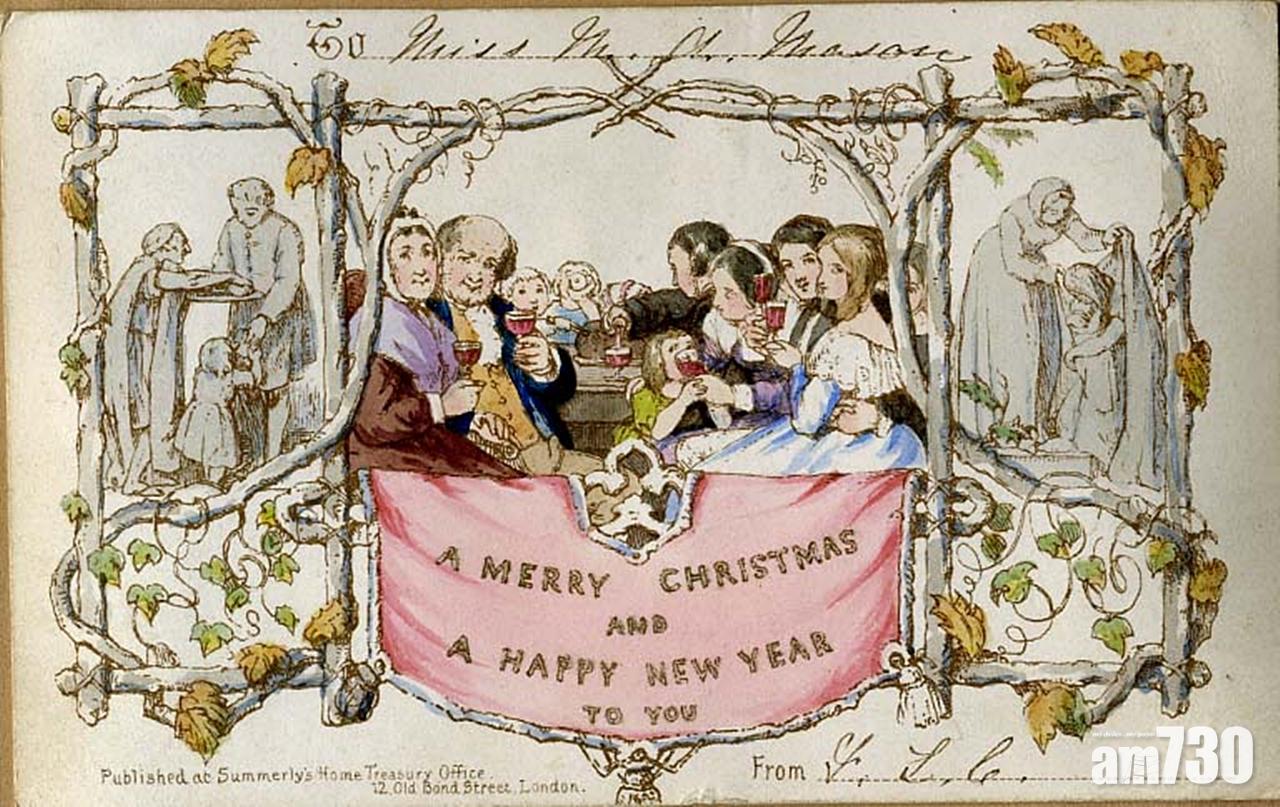 To Miss M. A. Mason
A MERRY CHRISTMAS
AND
A HAPPY NEW YEAR
TO YOU
Published at Summerly's Home Treasury Office.
12, Old Bond Street, London.
From
am730